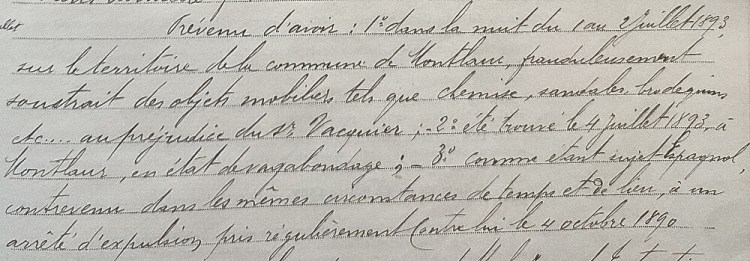 Prévenu d'avoir : 1º dans la nuit du 1 au 2 Juillet 1893,
sur le territoire de la commune de Montlaur, frauduleusement
soustrait des objets mobiliers tels que chemise, sandales, brodequins
etc.... au préjudice du Sr Vacquier ; - 2º été trouvé le 4 Juillet 1893, à
Montlaur, en état de vagabondage ; - 3º comme étant sujet Espagnol,
contrevenu dans les mêmes circonstances de temps et de lieu, à un
arrêté d'expulsion pris régulièrement contre lui le 4 octobre 1890